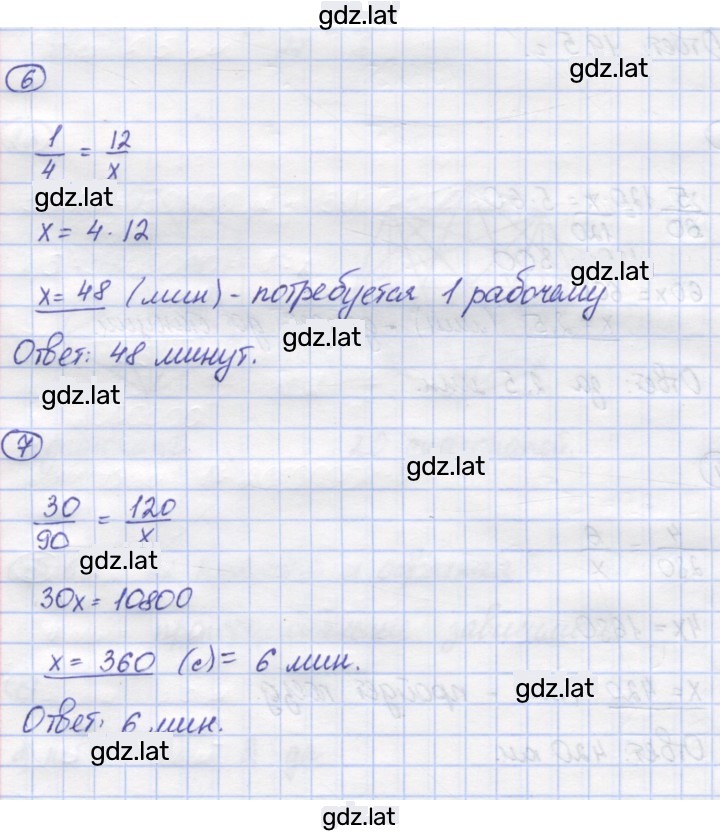 gdz.lat
gdz.lat
6
1/4 = 12/x
gdz.lat
x = 4 · 12
gdz.lat
x = 48 (мин) - потребуется 1 рабочему
gdz.lat
Ответ: 48 минут.
gdz.lat
7
gdz.lat
30/90 = 120/x
gdz.lat
30x = 10800
x = 360 (с) = 6 мин.
gdz.lat
Ответ: 6 мин.
gdz.lat
gdz.lat